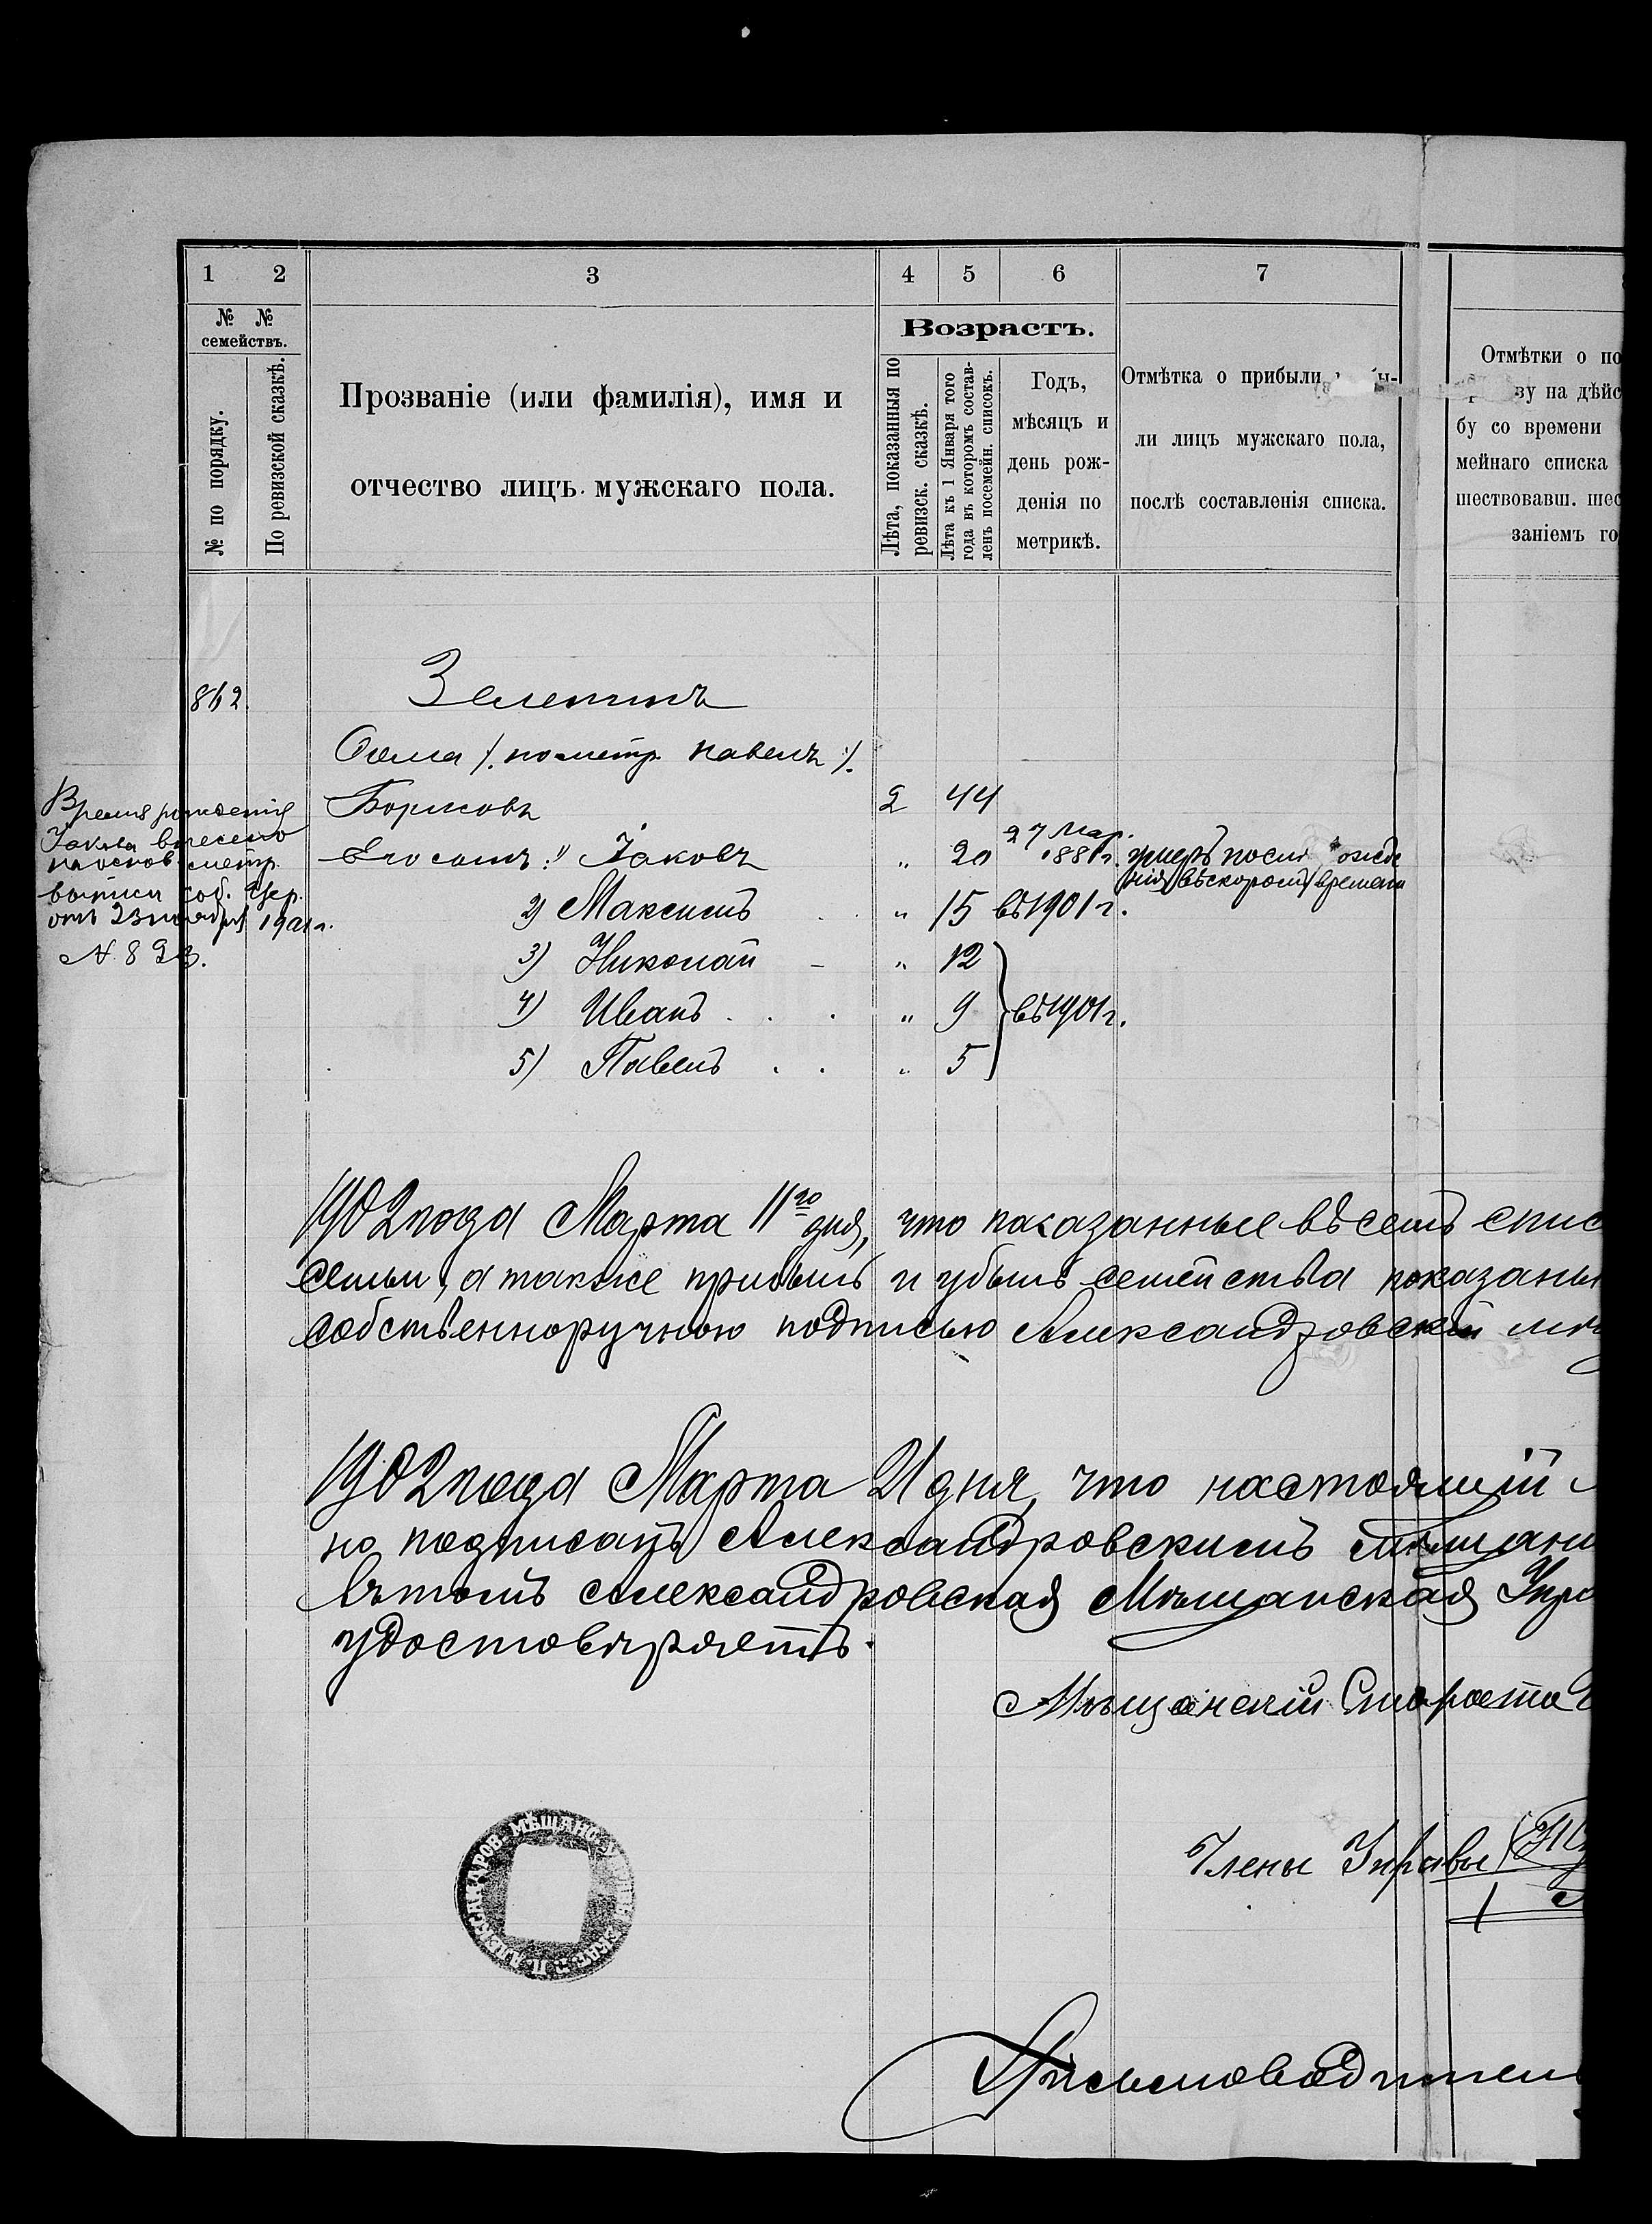 1 2 3 4 5 6 7
№ № семействъ.
№ по порядку.
По ревизской сказкѣ.
Прозваніе (или фамилія), имя и
отчество лицъ мужскаго пола.
Возрастъ.
Лѣта, показанныя по
ревизск. сказкѣ.
Лѣта къ 1 Января того
года въ которомъ состав-
ленъ посемейн. списокъ.
Годъ,
мѣсяцъ и
день рож-
денія по
метрикѣ.
Отмѣтка о прибыли
ли лицъ мужскаго пола,
послѣ составленія списка.
Отмѣтки о по
ву на дѣйс
бу со времени
мейнаго списка
шествовавш. шес
заніемъ го
862
Зеленинъ
Ѳома /. по метр. Павелъ ./.
Борисовъ 2 44
Его сынъ: 1) Іаковъ " 20 27 Мар. 1881 г. умеръ послѣ рожде
нія въ скоромъ времени
2) Максимъ " 15 въ 1901 г.
3) Николай " 12
4) Иванъ " 9 въ 1901 г.
5) Павелъ " 5
Время рожденія
Іакова внесено
на основ. метр.
выписи соб. Цер.
отъ 23 ноября 1901 г.
№ 893.
1902 года Марта 11го дня, что показанные въ семъ спис
семьи, а также прибыль и убыль семейства показаны
собственноручною подписью Александровскій мѣщ
1902 года Марта 21 дня, что настоящій
но подписанъ Александровскимъ мѣщан
въ томъ Александровская Мѣщанская Упра
удостовѣряетъ.
Мѣщанскій Староста
АЛЕКСАНДРОВ. МѢЩАНС. УПРАВА ЕКАТ.
Члены Управы
Письмоводитель